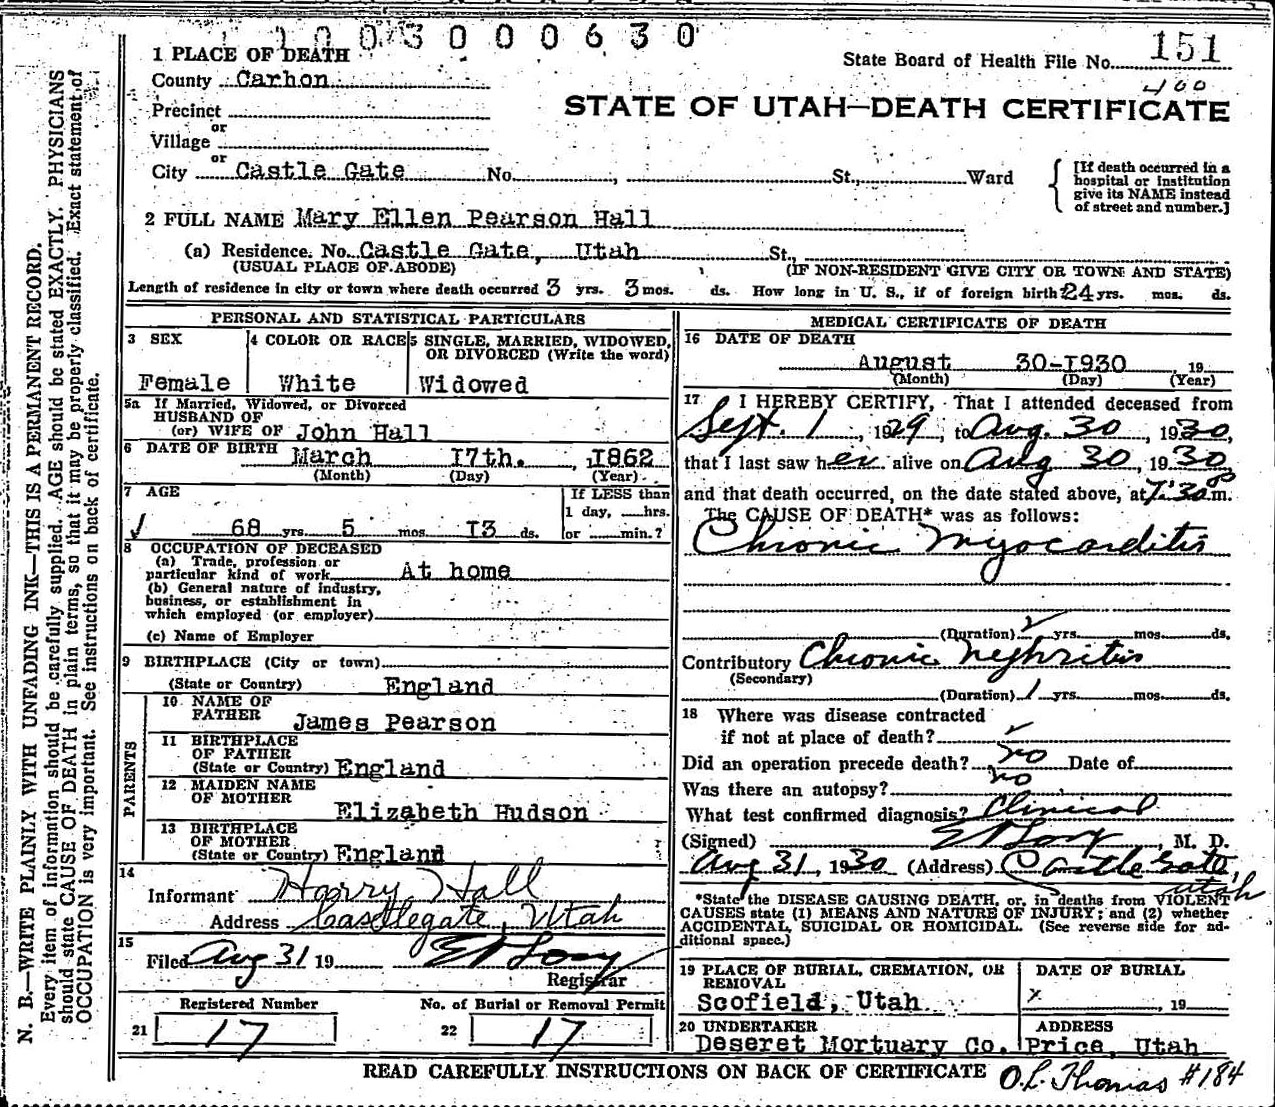 1003000630
1 PLACE OF DEATH
State Board of Health File No. 151
County Carhon
400
STATE OF UTAH—DEATH CERTIFICATE
Precinct
or
Village
or
City Castle Gate No. , St., Ward
[If death occurred in a
hospital or institution
give its NAME instead
of street and number.]
2 FULL NAME Mary Ellen Pearson Hall
(a) Residence. No. Castle Gate, Utah St.,
(USUAL PLACE OF ABODE) (IF NON-RESIDENT GIVE CITY OR TOWN AND STATE)
Length of residence in city or town where death occurred 3 yrs. 3 mos. ds. How long in U. S., if of foreign birth 24 yrs. mos. ds.
PERSONAL AND STATISTICAL PARTICULARS
3 SEX 4 COLOR OR RACE 5 SINGLE, MARRIED, WIDOWED,
OR DIVORCED (Write the word)
Female White Widowed
5a If Married, Widowed, or Divorced
HUSBAND OF
(or) WIFE OF John Hall
6 DATE OF BIRTH March 17th. , 1862
(Month) (Day) (Year)
7 AGE If LESS than
1 day, hrs.
68 yrs. 5 mos. 13 ds. or min.?
8 OCCUPATION OF DECEASED
(a) Trade, profession or
particular kind of work At home
(b) General nature of industry,
business, or establishment in
which employed (or employer)
(c) Name of Employer
9 BIRTHPLACE (City or town)
(State or Country) England
PARENTS
10 NAME OF
FATHER James Pearson
11 BIRTHPLACE
OF FATHER
(State or Country) England
12 MAIDEN NAME
OF MOTHER
Elizabeth Hudson
13 BIRTHPLACE
OF MOTHER
(State or Country) England
14
Informant Harry Hall
Address Castlegate, Utah
15
Filed Aug 31 19
Registrar
Registered Number No. of Burial or Removal Permit
21 17 22 17
MEDICAL CERTIFICATE OF DEATH
16 DATE OF DEATH
August 30-1930 , 19
(Month) (Day) (Year)
17 I HEREBY CERTIFY, That I attended deceased from
Sept. 1 , 1929, to Aug. 30 , 1930,
that I last saw her alive on Aug 30 , 1930
and that death occurred, on the date stated above, at 7:30 P m.
The CAUSE OF DEATH* was as follows:
Chronic Myocarditis
(Duration) 2 yrs. mos. ds.
Contributory Chronic Nephritis
(Secondary)
(Duration) 1 yrs. mos. ds.
18 Where was disease contracted
if not at place of death?
Did an operation precede death? no Date of
Was there an autopsy? no
What test confirmed diagnosis? Clinical
(Signed) , M. D.
Aug 31, 1930 (Address) Castle Gate,
Utah
*State the DISEASE CAUSING DEATH, or, in deaths from VIOLENT
CAUSES state (1) MEANS AND NATURE OF INJURY; and (2) whether
ACCIDENTAL, SUICIDAL OR HOMICIDAL. (See reverse side for ad-
ditional space.)
19 PLACE OF BURIAL, CREMATION, OR
REMOVAL
Scofield, Utah
DATE OF BURIAL
x , 19
20 UNDERTAKER ADDRESS
Deseret Mortuary Co. Price, Utah
READ CAREFULLY INSTRUCTIONS ON BACK OF CERTIFICATE
O.L. Thomas #184
N. B.—WRITE PLAINLY WITH UNFADING INK—THIS IS A PERMANENT RECORD.
Every item of information should be carefully supplied. AGE should be stated EXACTLY. PHYSICIANS
should state CAUSE OF DEATH in plain terms, so that it may be properly classified. Exact statement of
OCCUPATION is very important. See instructions on back of certificate.